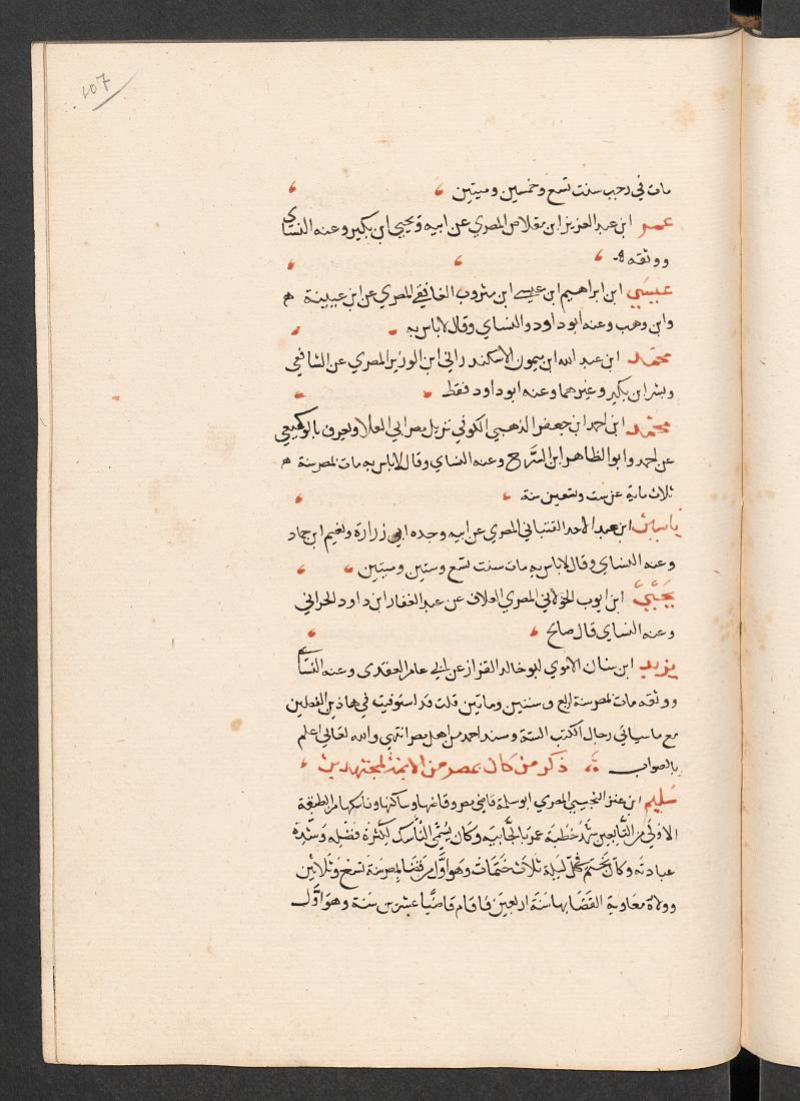 107
مات في رجب سنت تسع وخمسين وميتين
عمر ابن عبد العزيز ابن مقلاص المصري عن ابيه ويحيى ابن بكير وعنه النساي
ووثقه
عيسي ابن ابراهيم ابن عيسى ابن مثرود الغافقي المصري عن ابن عيينة
وابن وهب وعنه ابو داود والنساي وقال لا باس به
محمد ابن عبد الله ابن ميمون الاسكندراني ابن الوزير المصري عن الشافعي
وبشر ابن بكير وغيرهما وعنه ابو داود فقط
محمد ابن احمد ابن جعفر الذهبي الكوفي نزيل مصر ابي العلا ويعرف بالوكيعي
عن احمد وابو الظاهر ابن السرح وعنه النساي وقال لا باس به مات بمصر سنة
ثلاث ماية عن ست وتسعين سنة
ياسين ابن عبد الاحد القتباني المصري عن ابيه وجده ابي زرارة ونعيم ابن حماد
وعنه النساي وقال لا باس به مات سنت تسع وستين وميتين
يحيى ابن ايوب الخولاني المصري العلاف عن عبد الغفار ابن داود الحراني
وعنه النساي قال صالح
يزيد ابن سنان الاموي ابو خالد القزاز عن ابي عامر العقدى وعنه النساي
ووثقه مات بمصر سنة اربع وستين وماتين قلت قد استوفيت في هاذين الفصلين
مع ما سياتي رجال الكتب الستة وسند احمد من اهل مصر انتهي والله تعالى اعلم
بالصواب ذكر من كان بمصر من الايمة المجتهدين
سليم ابن عنز التجيبي المصري ابو سلمة قاضي مصر وقاصها وساكنها وناسكها من الطبقة
الاولى من التابعين شهد خطبة عمر بالجابية وكان يسمى الناسك لكثرة فضله وشدة
عبادته وكان يختم كل ليلة ثلاث ختمات وهو اول من قص بمصر سنة تسع وثلاثين
وولاه معاوية القضا بها سنة اربعين فاقام قاضيا عشرين سنة وهو اول